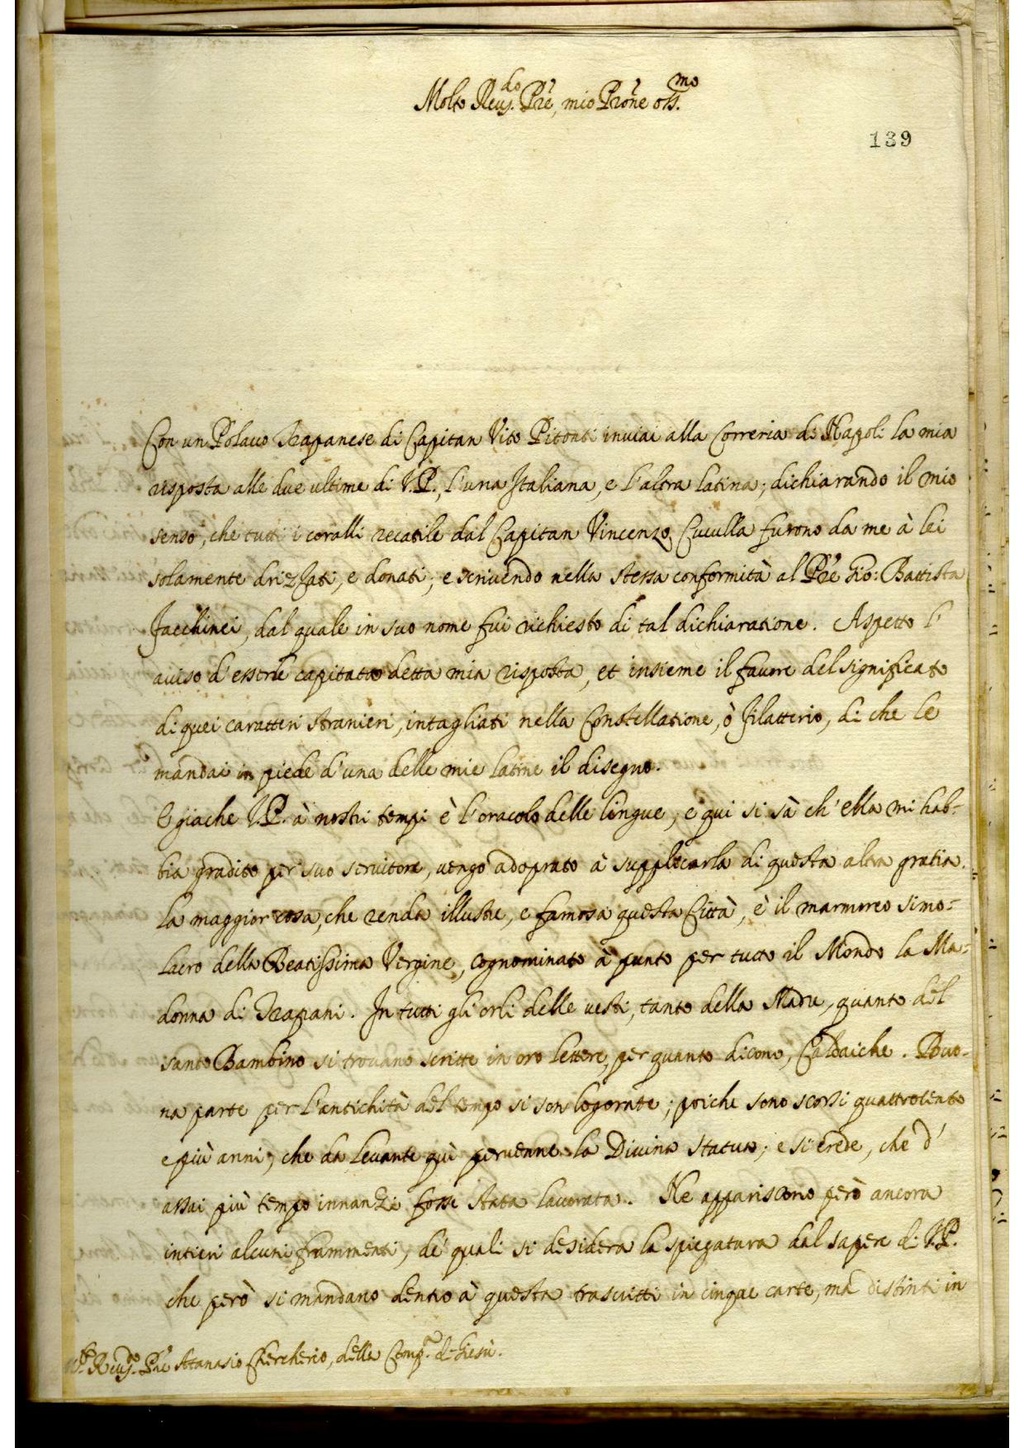 Molto Reu.do Pre, mio Prone oss.mo
139
Con un Polauo Trapanese di Capitan Vito Pitonti inuiai alla Correria di Napoli la mia
risposta alle due ultime di V.P., l'una Italiana, e l'altra latina; dichiarando il mio
senso, che tutti i coralli recatile dal Capitan Vincenzo Cuculla furono da me à lei
solamente drizzati, e donati; e scriuendo nella stessa conformità al Pre Gio: Battista
Jacchinei, dal quale in suo nome fui richiesto di tal dichiaratione. Aspetto l'
auiso d'esserle capitata detta mia risposta, et insieme il fauore del significato
di quei caratteri stranieri, intagliati nella Constellatione, ò filatterio, di che le
mandai in piede d'una delle mie latine il disegno.
E giache V.P. à nostri tempi è l'oracolo delle lingue, e qui si sà ch'ella mi hab=
bia gradito per suo seruitore, vengo adoprato à supplicarla di questa altra gratia.
La maggior cosa, che renda illustre, e famosa questa Città, è il marmoreo simo=
lacro della Beatissima Vergine, cognominato à punto per tutto il Mondo la Ma=
donna di Trapani. In tutti gli orli delle vesti, tanto della Madre, quanto del
santo Bambino si trouano scritte in oro lettere, per quanto dicono, Caldaiche. Buo=
na parte per l'antichità del tempo si son logorate; poiche sono scorsi quattrocento
e più anni, che da Leuante quì peruenne la Diuina Statua; e si crede, che d'
assai più tempo innanzi fosse stata lauorata. Ne appariscono però ancora
intieri alcuni frammenti, de' quali si desidera la spiegatura dal sapere di V.P.
che però si mandano dentro à questa trascritti in cinque carte, mà distinti in
M.to Reu.do Pre Atanasio Chercherio, della Comp.a di Giesù.